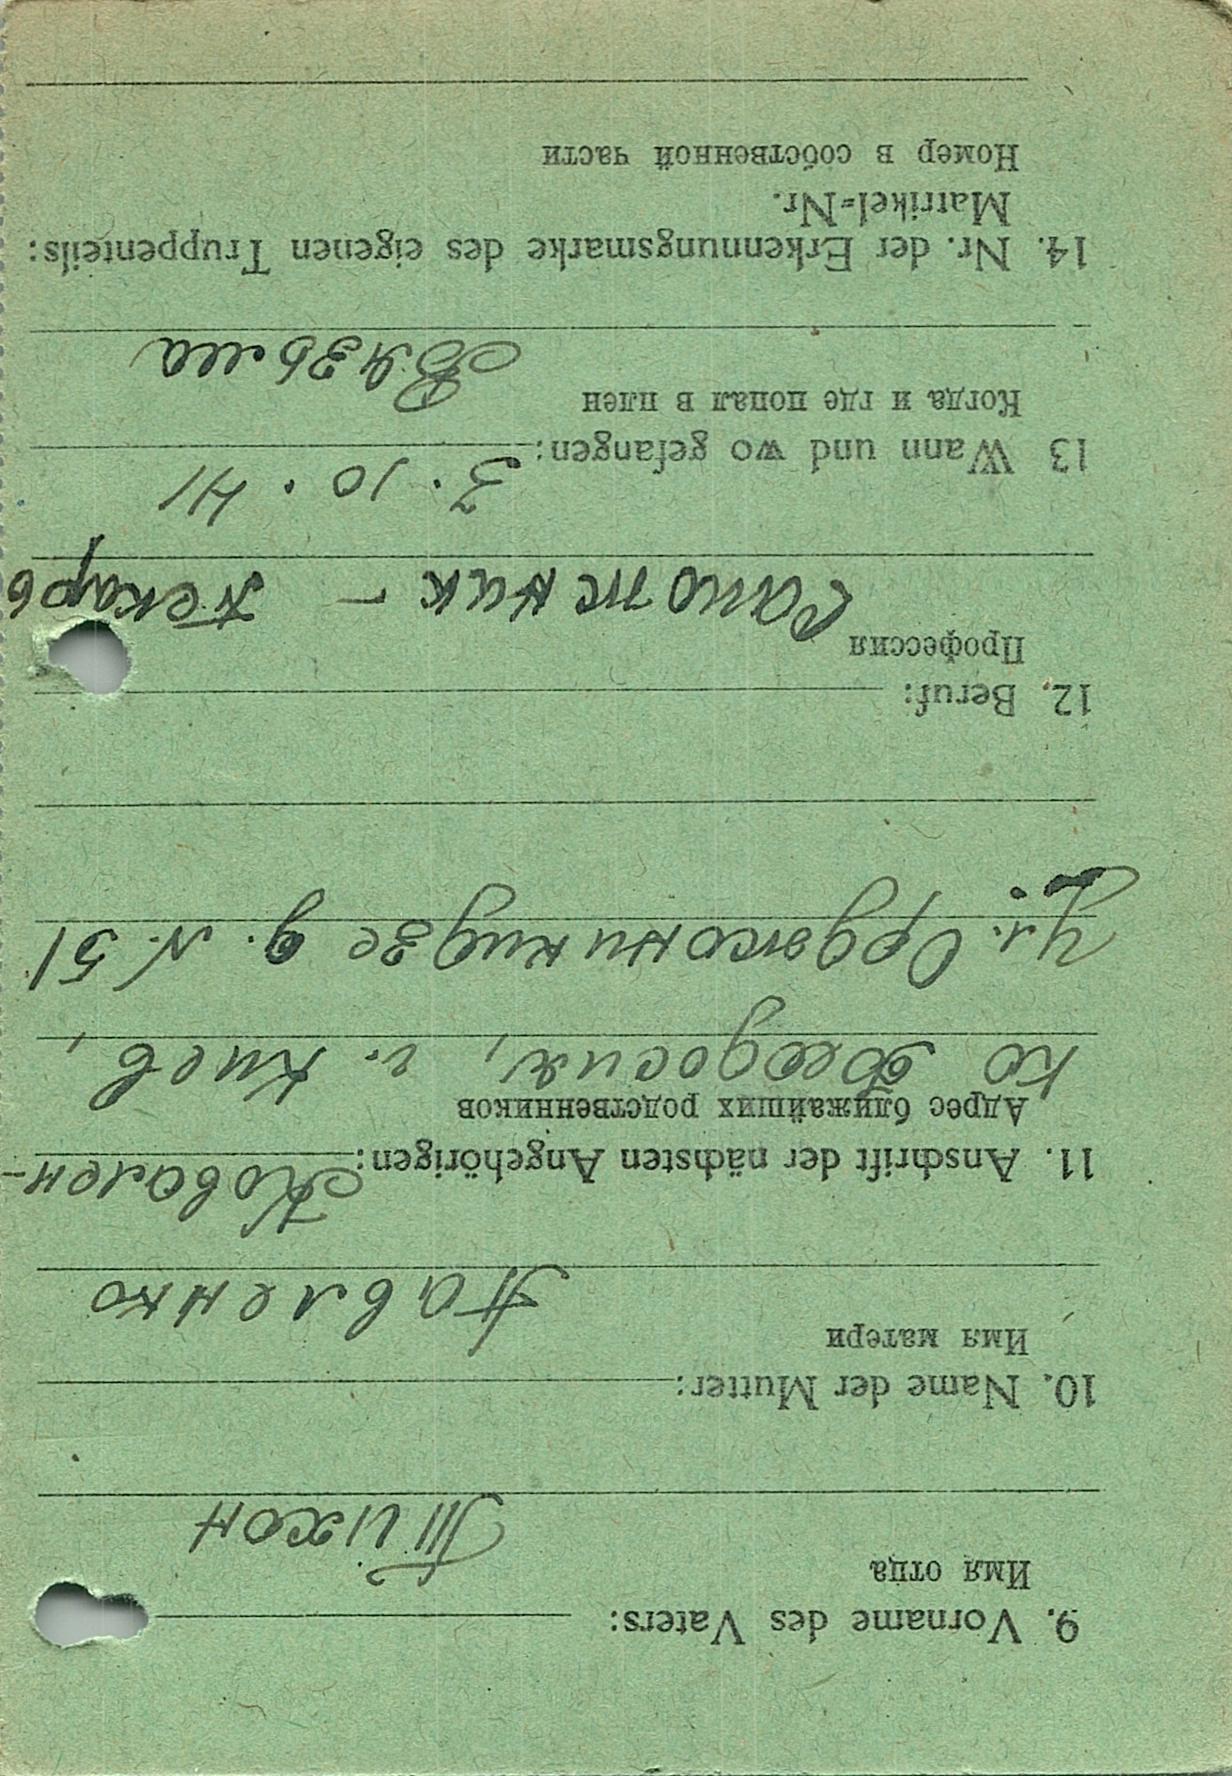 9. Vorname des Vaters:
Имя отца
Тихон
10. Name der Mutter:
Имя матери
Павленко
11. Anschrift der nächsten Angehörigen: Ковален-
Адрес ближайших родственников
ко Феодосия, г. Киев,
Ул. Орджоникидзе д. N. 51
12. Beruf:
Профессия
Сапожник - пекарь
13 Wann und wo gefangen: 3. 10. 41
Когда и где попал в плен
Вязьма
14. Nr. der Erkennungsmarke des eigenen Truppenteils:
Matrikel=Nr.
Номер в собственной части